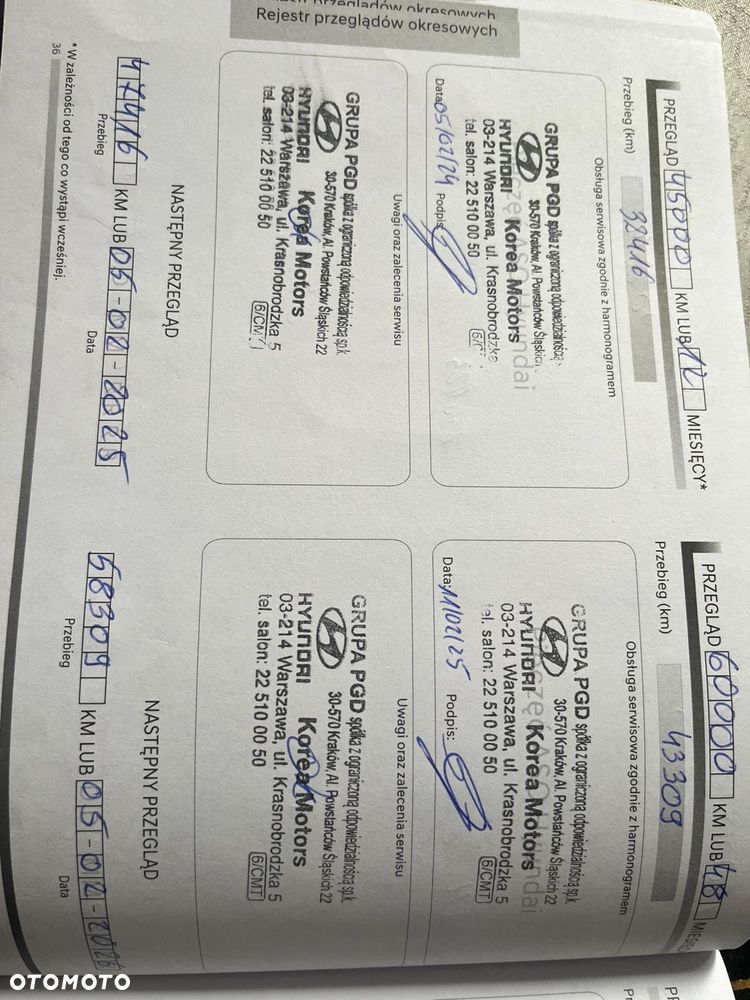 Rejestr przeglądów okresowych
PRZEGLĄD 45000 KM LUB 12 MIESIĘCY*
Przebieg (km) 32416
Obsługa serwisowa zgodnie z harmonogramem
GRUPA PGD spółka z ograniczoną odpowiedzialnością
30-570 Kraków, Al. Powstańców Śląskich
HYUNDAI Korea Motors
03-214 Warszawa, ul. Krasnobrodzka
tel. salon: 22 510 00 50
Data: 05/02/24 Podpis:
Uwagi oraz zalecenia serwisu
GRUPA PGD spółka z ograniczoną odpowiedzialnością sp.k.
30-570 Kraków, Al. Powstańców Śląskich 22
HYUNDAI Korea Motors
03-214 Warszawa, ul. Krasnobrodzka 5
tel. salon: 22 510 00 50
NASTĘPNY PRZEGLĄD
47416 KM LUB 05-02-2025
Przebieg Data
* W zależności od tego co wystąpi wcześniej.
36
PRZEGLĄD 60000 KM LUB 48
Przebieg (km) 43309
Obsługa serwisowa zgodnie z harmonogramem
GRUPA PGD spółka z ograniczoną odpowiedzialnością sp.k.
30-570 Kraków, Al. Powstańców Śląskich 22
HYUNDAI Korea Motors
03-214 Warszawa, ul. Krasnobrodzka 5
tel. salon: 22 510 00 50 6/CMT
Data: 11/02/25 Podpis:
Uwagi oraz zalecenia serwisu
GRUPA PGD spółka z ograniczoną odpowiedzialnością sp.k.
30-570 Kraków, Al. Powstańców Śląskich 22
HYUNDAI Korea Motors
03-214 Warszawa, ul. Krasnobrodzka 5
tel. salon: 22 510 00 50 6/CMT
NASTĘPNY PRZEGLĄD
58309 KM LUB 05-02-2026
Przebieg Data
OTOMOTO